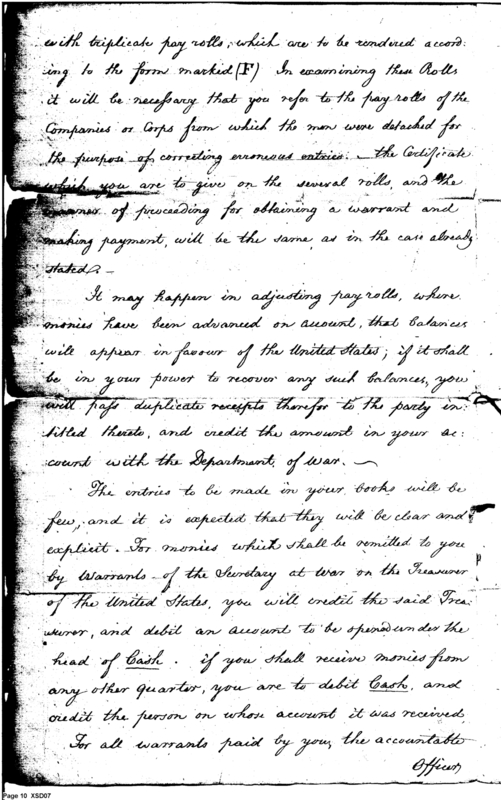 with triplicate pay rolls, which are to be rendered accord:
ing to the form marked (F) In examining these Rolls
it will be necessary that you refer to the pay rolls of the
Companies or Corps from which the men were detached for
the purpose of correcting erroneous entries. – the Certificate
which you are to give on the several rolls, and the
manner of proceeding for obtaining a warrant and
making payment, will be the same as in the case already
stated. –
It may happen in adjusting pay rolls, where
monies have been advanced on account, that balances
will appear in favour of the United States; if it shall
be in your power to recover any such balances, you
will pass duplicate receipts therefor to the party in-
titled thereto, and credit the amount in your ac:
count with the Department of War. –
The entries to be made in your books will be
few, and it is expected that they will be clear and
explicit. For monies which shall be remitted to you
by Warrants of the Secretary at War on the Treasurer
of the United States, you will credit the said Trea:
surer, and debit an account to be opened under the
head of Cash. if you shall receive monies from
any other quarter, you are to debit Cash, and
credit the person on whose account it was received
For all warrants paid by you, the accountable
Officer,
Page 10 XSD07